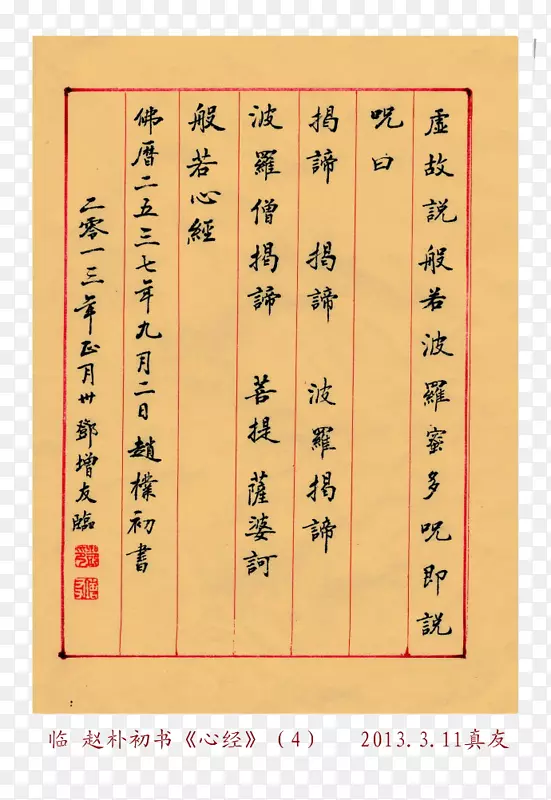 虛故説般若波羅蜜多呪即説
呪曰
揭諦 揭諦 波羅揭諦
波羅僧揭諦 菩提薩婆訶
般若心經
佛曆二五三七年九月二日趙樸初書
二零一三年正月卅鄧增友臨
临 赵朴初书《心经》（4） 2013.3.11真友